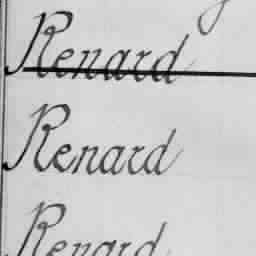 Renard
Renard
Renard